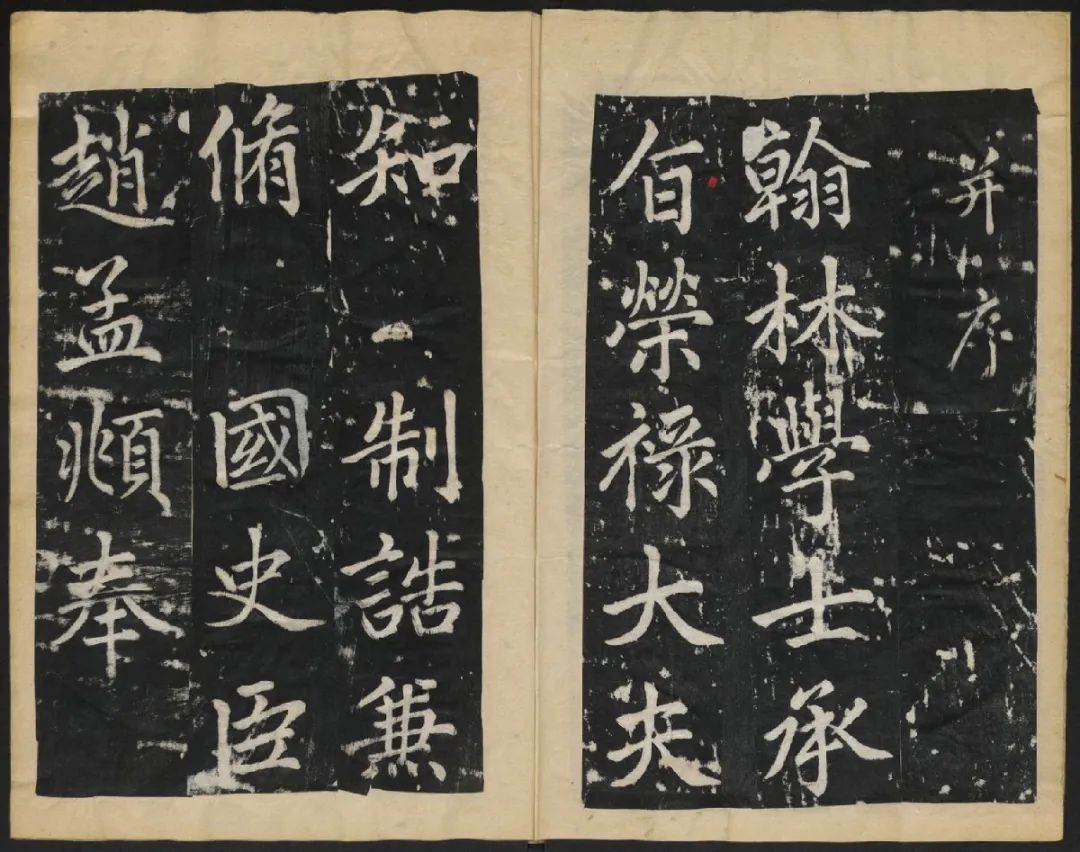 并序
翰林學士承
旨榮祿大夫
知制誥兼
脩國史臣
趙孟頫奉